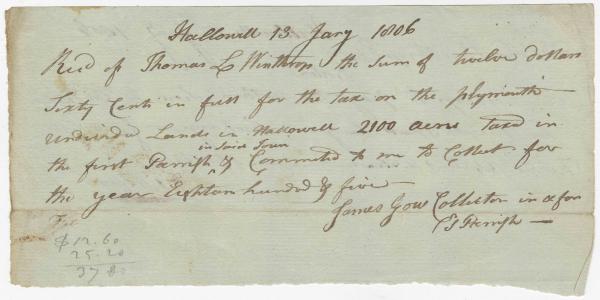 Hallowell 13 Jany 1806
Recd of Thomas L Winthrop the Sum of twelve dollars
Sixty Cents in full for the tax on the plymouth
undivided Lands in Hallowell 2100 acres taxd in
in Said Town
the first Parrish & Committed to me to Collect for
the year Eighteen hundred & five
James Gow Collector in & for
Sd Parrish
$12.60
25.20
37 8